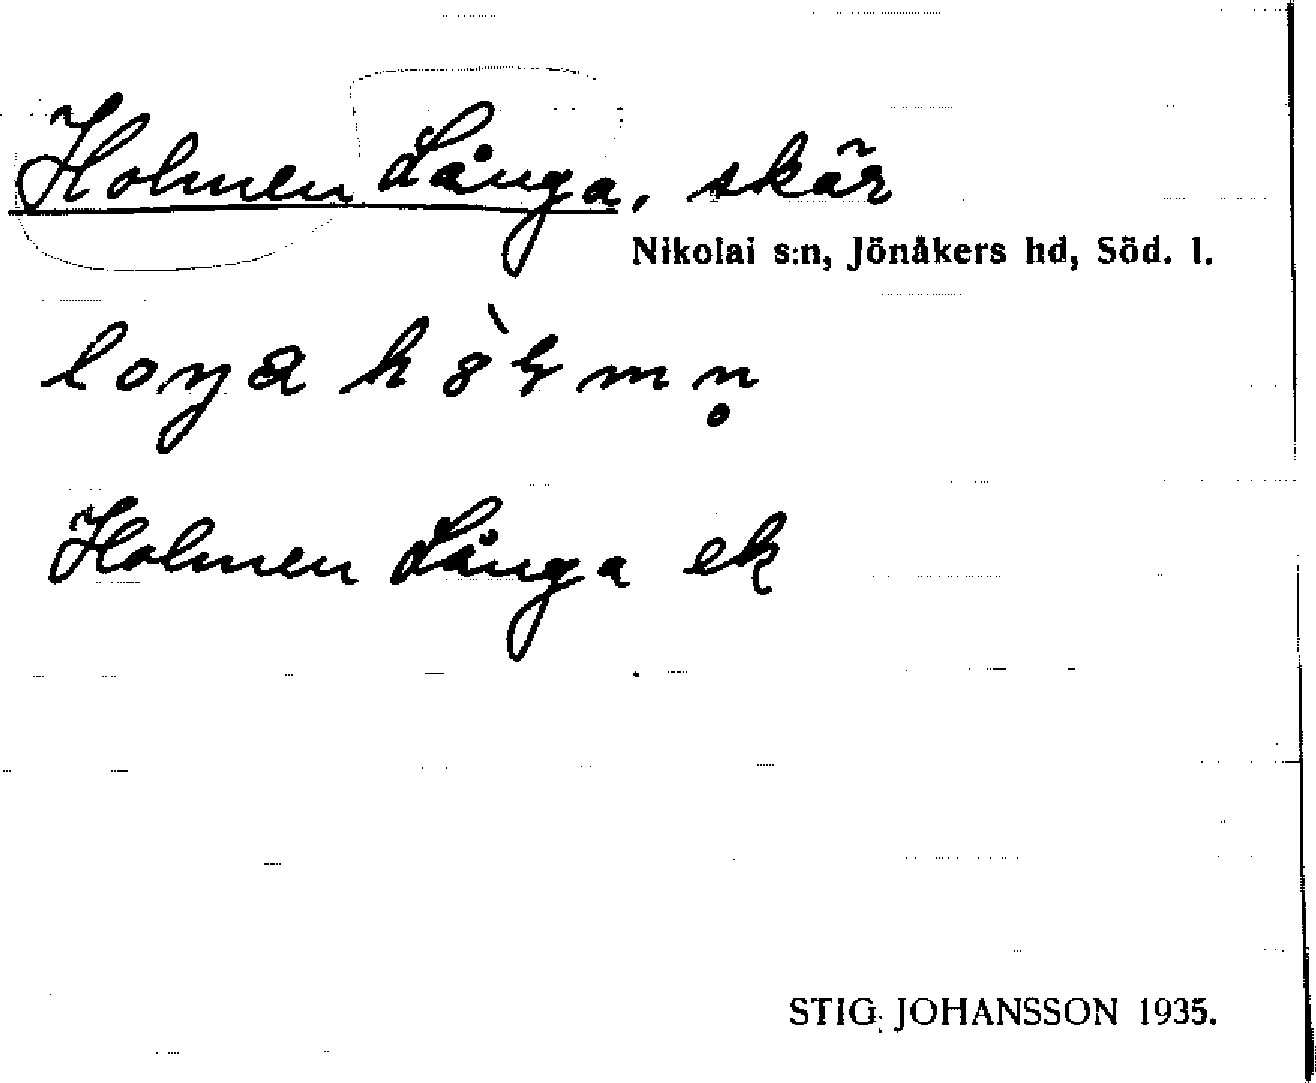 Holmen Långa, skär
Nikolai s:n, Jönåkers hd, Söd. l.
Holmen Långa ek
STIG JOHANSSON 1935.